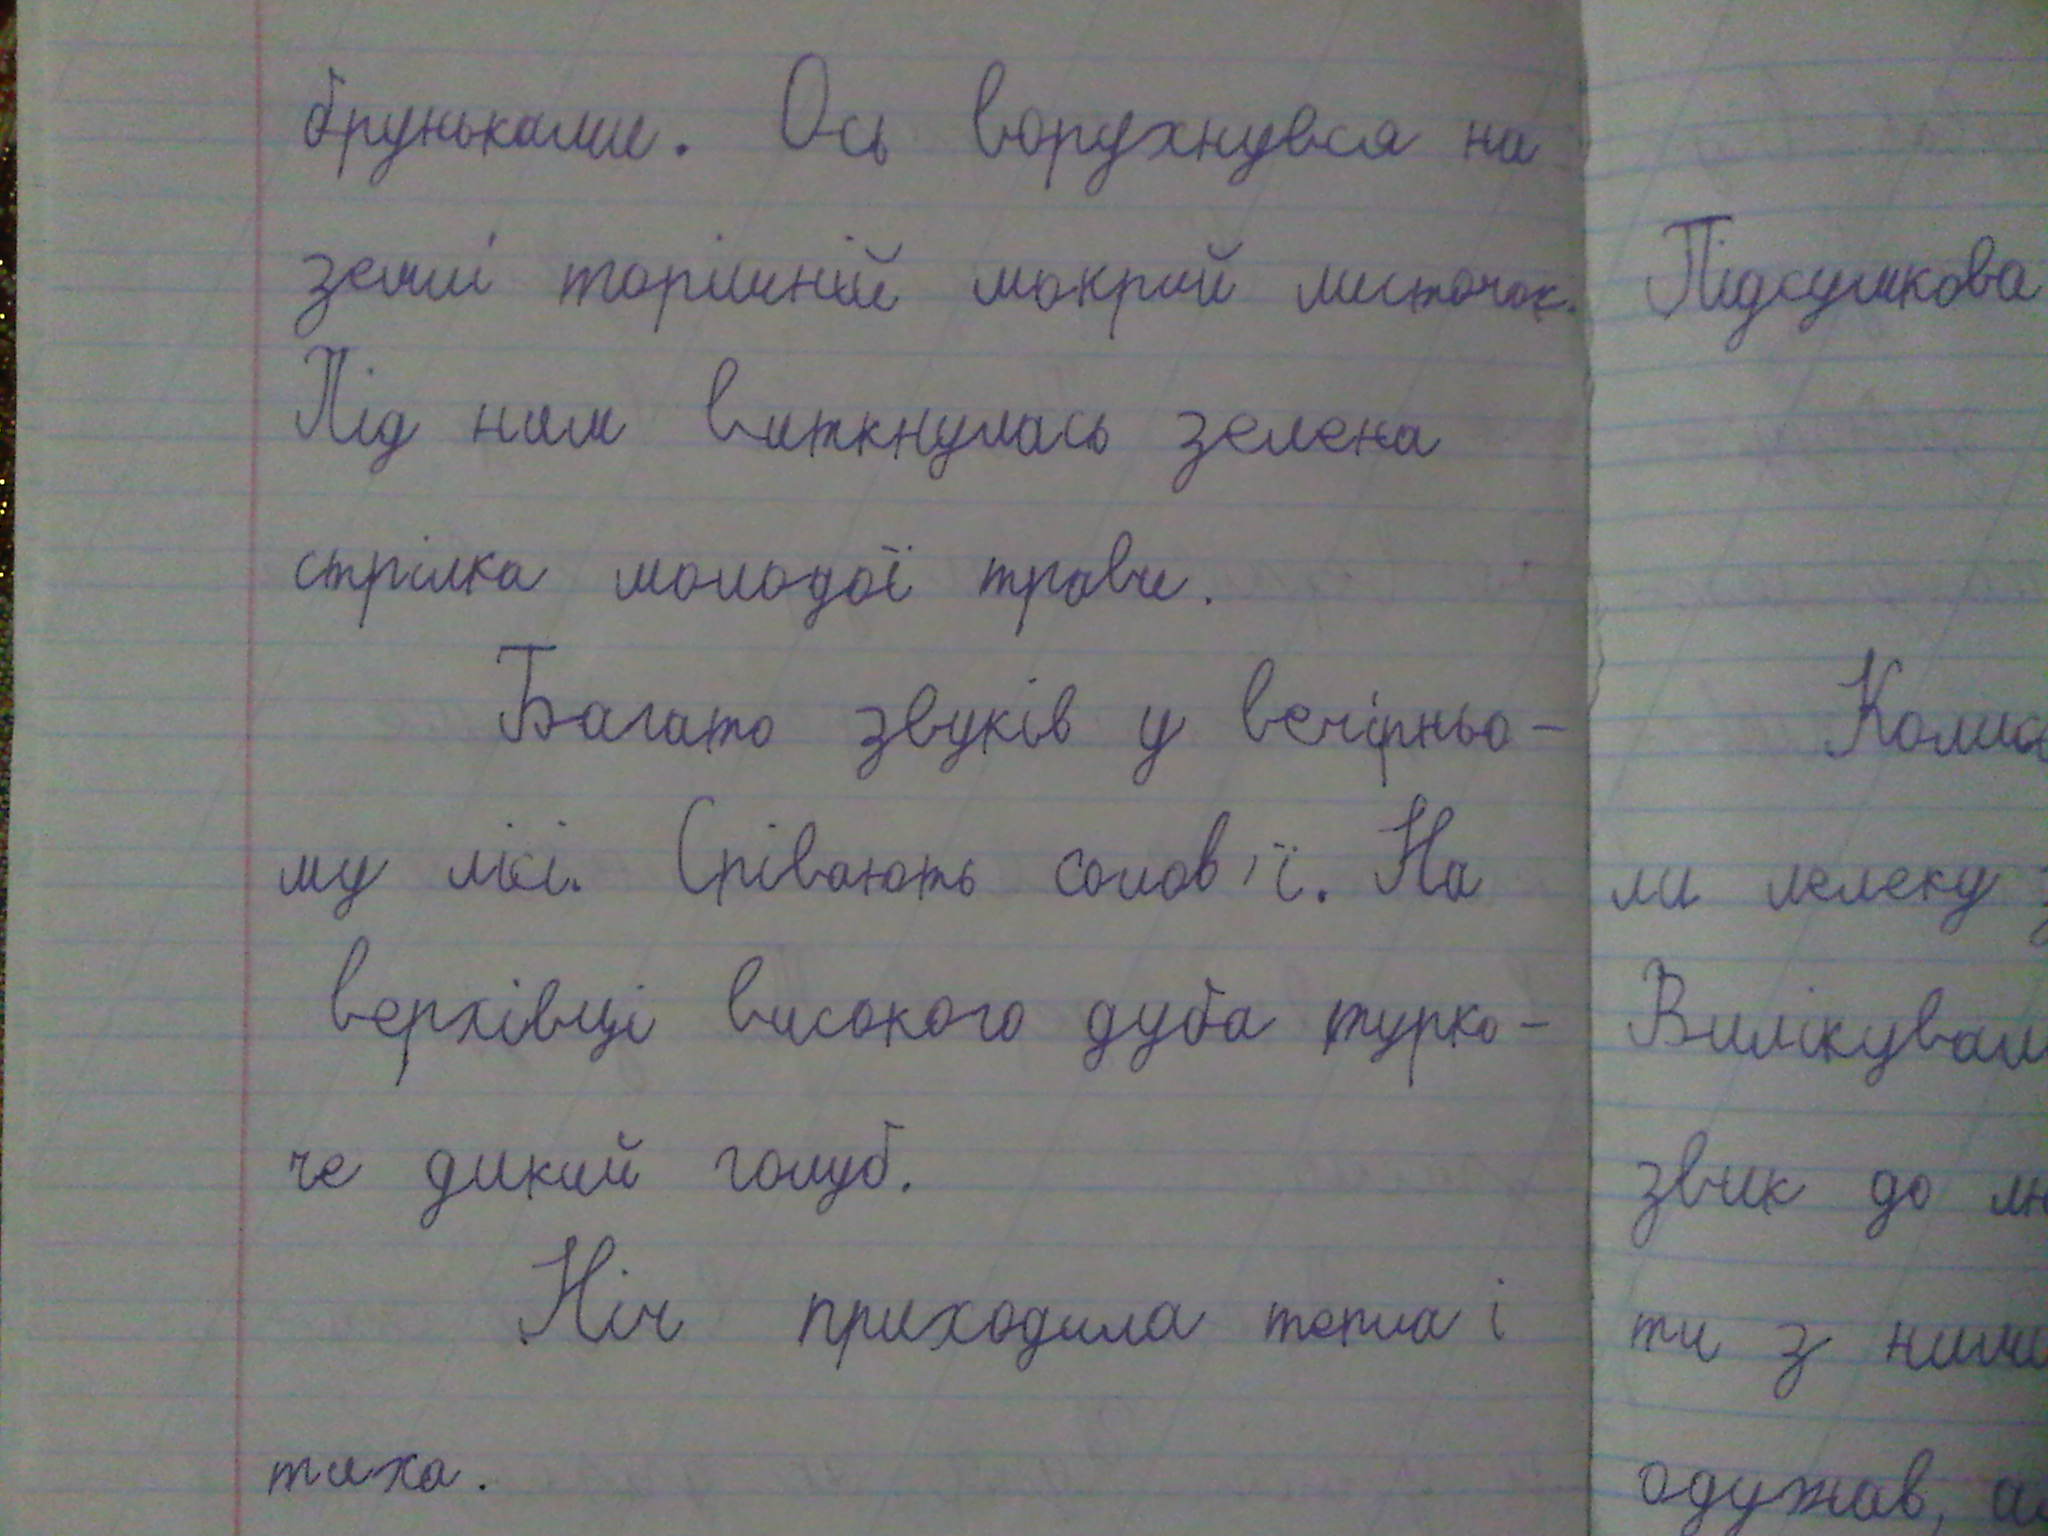 бруньками. Ось ворухнувся на
землі торішній мокрий листочок.
Під ним виткнулась зелена
стрілка молодої трави.
Багато звуків у вечірньо-
му лісі. Співають солов'ї. На
верхівці високого дуба турко-
че дикий голуб.
Ніч приходила тепла і
тиха.
Підсумкова
Колись
ли лелеку з
Вилікували
звик до лю
ти з ними
одужав, ал